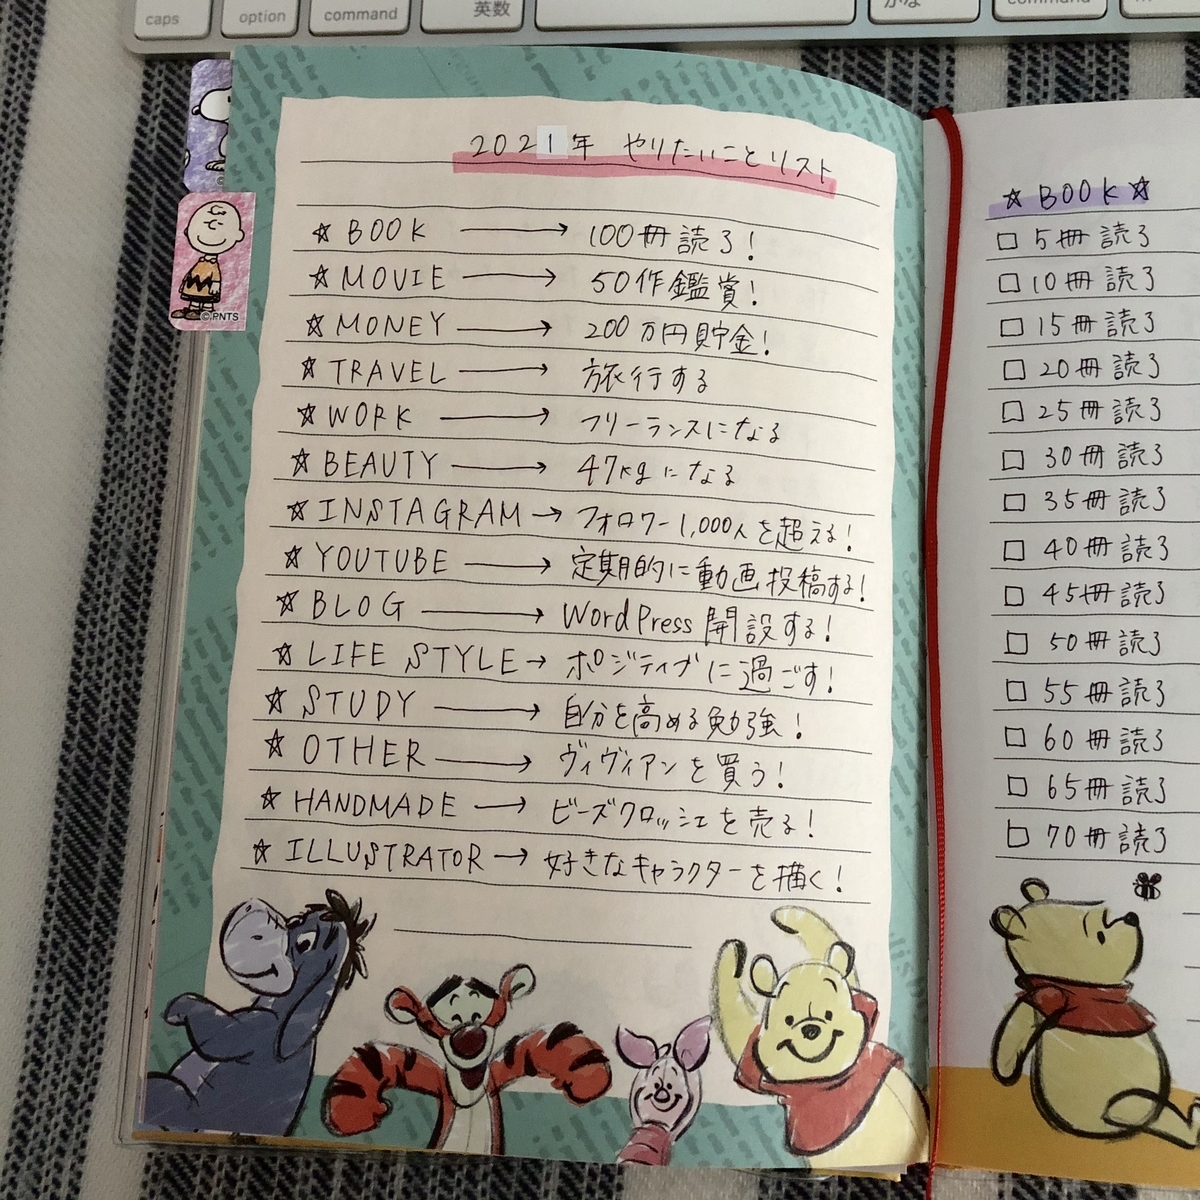 caps
option
command
英数
かな
command
©.PNTS
2021年 やりたいことリスト
☆ BOOK → 100冊読了!
☆ MOVIE → 50作鑑賞!
☆ MONEY → 200万円貯金!
☆ TRAVEL → 旅行する
☆ WORK → フリーランスになる
☆ BEAUTY → 47kgになる
☆ INSTAGRAM → フォロワー1,000人を超える!
☆ YOUTUBE → 定期的に動画投稿する!
☆ BLOG → WordPress開設する!
☆ LIFE STYLE → ポジティブに過ごす!
☆ STUDY → 自分を高める勉強!
☆ OTHER → ヴィヴィアンを買う!
☆ HANDMADE → ビーズクロッシェを売る!
☆ ILLUSTRATOR → 好きなキャラクターを描く!
☆ BOOK ☆
□ 5冊読了
□ 10冊読了
□ 15冊読了
□ 20冊読了
□ 25冊読了
□ 30冊読了
□ 35冊読了
□ 40冊読了
□ 45冊読了
□ 50冊読了
□ 55冊読了
□ 60冊読了
□ 65冊読了
□ 70冊読了